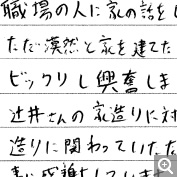 職場の人に家の話をし
ただ漠然と家を建てた
ビックリし興奮しま
辻井さんの家造りに対
造りに関わっていただ